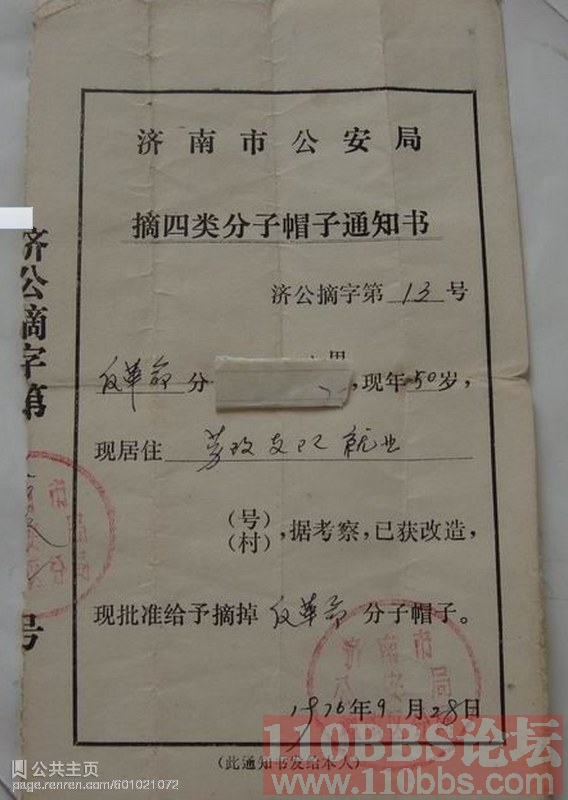 济南市公安局
摘四类分子帽子通知书
济公摘字第13号
反革命分 男,现年50岁,
现居住 劳改支队就业
(号)
(村),据考察,已获改造,
现批准给予摘掉反革命分子帽子。
济南市
公安局
1976年9月28日
(此通知书发给本人)
济公摘字第
号
公共主页
page.renren.com/601021072
110BBS论坛
www.110bbs.com